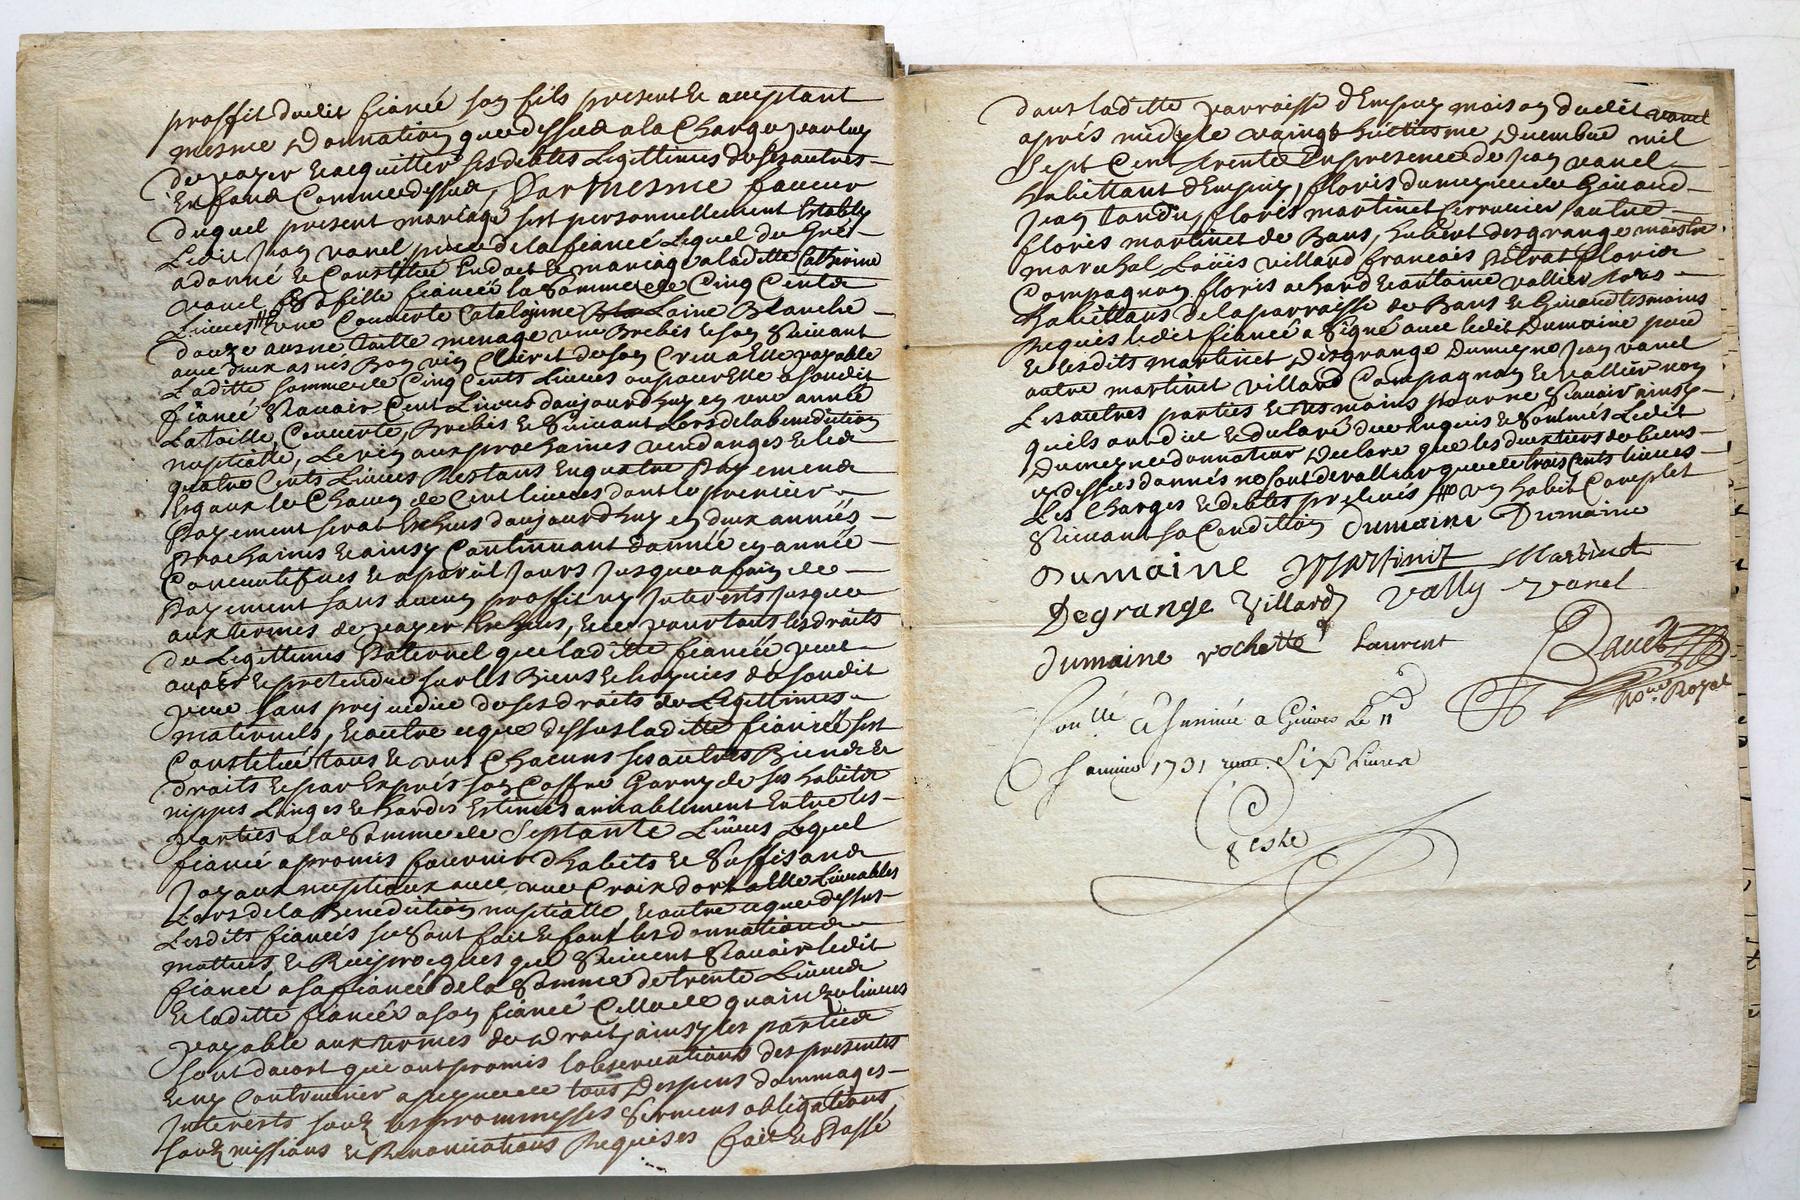 proffit dudit fiancé son fils present et acceptant
mesme donnation que dessus a la charge par luy
de payer et acquitter ses debtes legittimes de ses autres
enfans comme dessus, Par mesme faueur
duquel present mariage s'est personnellement estably
Ledit Jean vanel pere de la fiancé Lequel de gré
a donné et constitué en dot et mariage a laditte Catherine
vanel sa fille fiancée la somme de Cinq Cents
Liures une Couuerte Catalogne Laine Blanche
douze menage une Brebis et son suiuant
auec deux asnés Bon vin Clairet de son Creu a Elle payable
Laditte somme de Cinq Cents Liures ou pour Elle a sondit
fiancé Scauoir Cent Liures daujourdhuy en une année
La toille, Couuerte, Brebis et suiuant Lors de la benediction
nuptialle, Le vin aux prochaines vendanges et les
quatre Cents Liures Restans en quatre payemens
Esgaux de Chacun de Cent liures dont le premier
payement serat Escheus daujourdhuy en deux années
prochaines et ainsy Continuant dannée en année
Consecutifues et a pareil Jours Jusques a fain de
payement sans aucun proffit ny Interests Jusques
aux termes de payer Escheus, et ce pour tous les droits
de Legittimes Paternel que laditte fiancée peut
auoir et pretendre sur les Biens et hoyries de sondit
pere sans prejudice de ses droits de Legittimes
maternels, et outre ce que dessus laditte fiancée s'est
Constituée tous et uns Chacuns ses autres Biens et
droits et par Exprés son Coffre Garny de ses habits
nippes Linges et hardes Estimés amiablement Entre les
parties a la Somme de Septante Liures Lequel
fiancé a promis fournir dhabits et Suffisans
Joyaux nuptiaux auec une Croix dor a Elle Liurables
Lors de la Benediction nuptialle, et outre ce que dessus
Lesdits fiancés se sont fait et font les donnations
mutuels et Reciproques que Suiuent Scauoir ledit
fiancé a sa fiancée de la Somme de trente Liures
et laditte fiancée a son fiancé Celle de quainze liures
payable aux termes de droit, ainsy les parties
sont dacort que ont promis lobseruations des presentes
et ny Contreuenir a peyne de tous Despens dommages
Interests sous les prommesses Sermens obligations
soubmissions et Renonciations Requises fait et Passé
dans laditte parroisse dEmpuy maison dudit vanel
aprés midy le vaingt huictiesme Decembre mil
Sept Cent trente En presence de Jean vanel
habittant dEmpuy, floris dumeynee de Giraud
Jean tardy, floris martinet serrurier autre
floris martinet de Bans, hubert desgrange maistre
marechal, Loüis villard francois Floris
Compagnon floris achard et antoine vallier tous
habittans de la parroisse de Bans et Giraud tesmoins
Requis ledit fiancé a Signé auec ledit Dumaine pere
et lesdits martinet Desgrange Dumeyne Jean vanel
autre martinet villard Compagnon et vallier non
Les autres parties et tesmoins pour ne Scauoir ainsy
quils ont dit et declaré de ce Enquis et Sommés Ledit
Dumeynee donnateur Declare que les deux tiers de biens
cy dessus donnés ne sont de valleur que de trois Cents liures
Les Charges et debtes preleués un habit Complet
Suiuant sa Condition Dumaine Dumaine
Dumaine Martinet Martinet
Degrange Villard vally vanel
dumaine rochette Laurent
nore. Royal
Conllé & Insinué a Giuors Le 11
Januier 1731 Six Liures